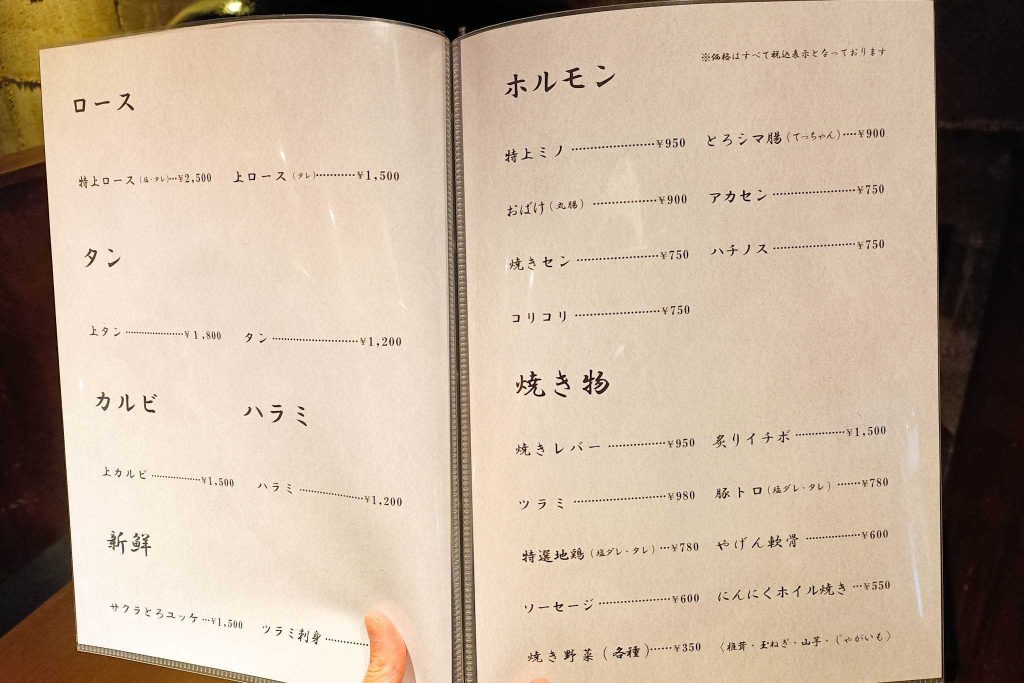 ロース
特上ロース(塩・タレ)…¥2,500 上ロース(タレ)…………¥1,500
タン
上タン…………………¥1,800 タン…………………¥1,200
カルビ ハラミ
上カルビ………………¥1,500 ハラミ………………¥1,200
新鮮
サクラとろユッケ…¥1,500 ツラミ刺身…………
※価格はすべて税込表示となっております
ホルモン
特上ミノ…………………¥950 とろシマ腸(てっちゃん)…¥900
おばけ(丸腸)………………¥900 アカセン…………………¥750
焼きセン…………………¥750 ハチノス…………………¥750
コリコリ…………………¥750
焼き物
焼きレバー………………¥950 炙りイチボ…………¥1,500
ツラミ……………………¥980 豚トロ(塩ダレ・タレ)……¥780
特選地鶏(塩ダレ・タレ)…¥780 やげん軟骨………………¥600
ソーセージ………………¥600 にんにくホイル焼き…¥550
焼き野菜(各種)……¥350 〈椎茸・玉ねぎ・山芋・じゃがいも〉